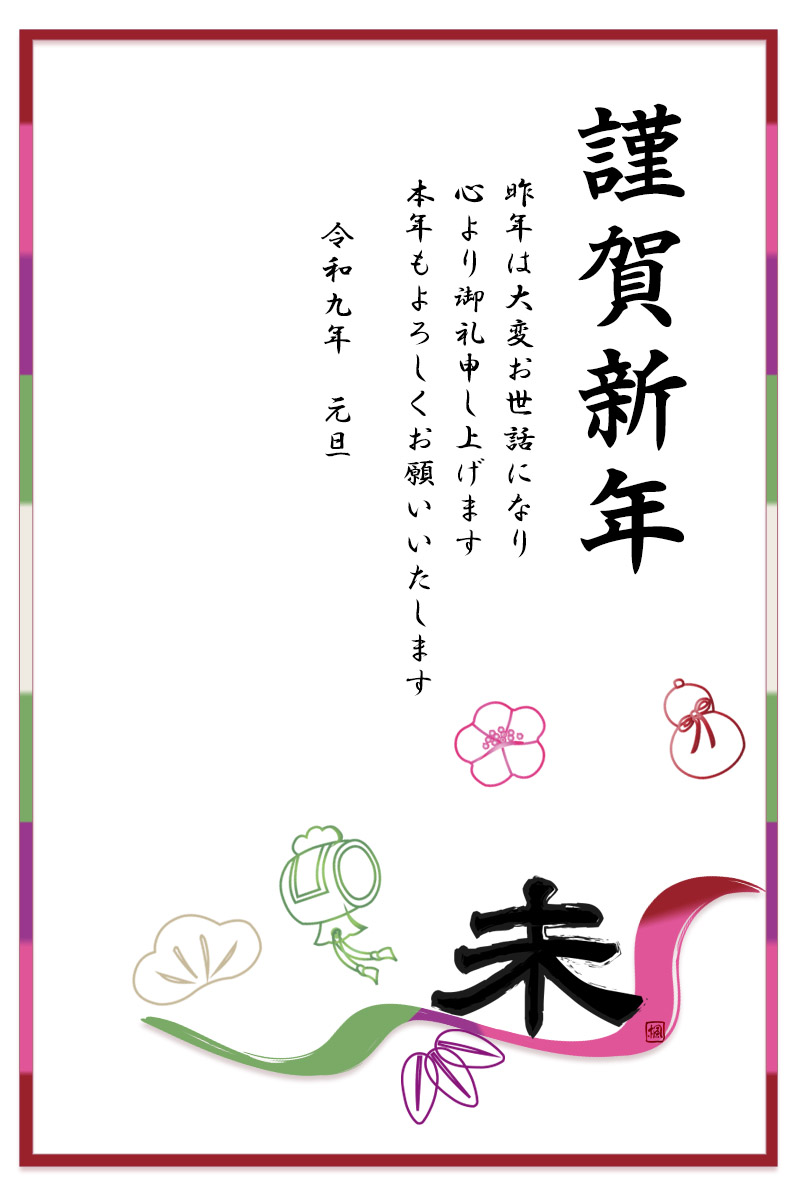 謹賀新年
昨年は大変お世話になり
心より御礼申し上げます
本年もよろしくお願いいたします
令和九年　元旦
未